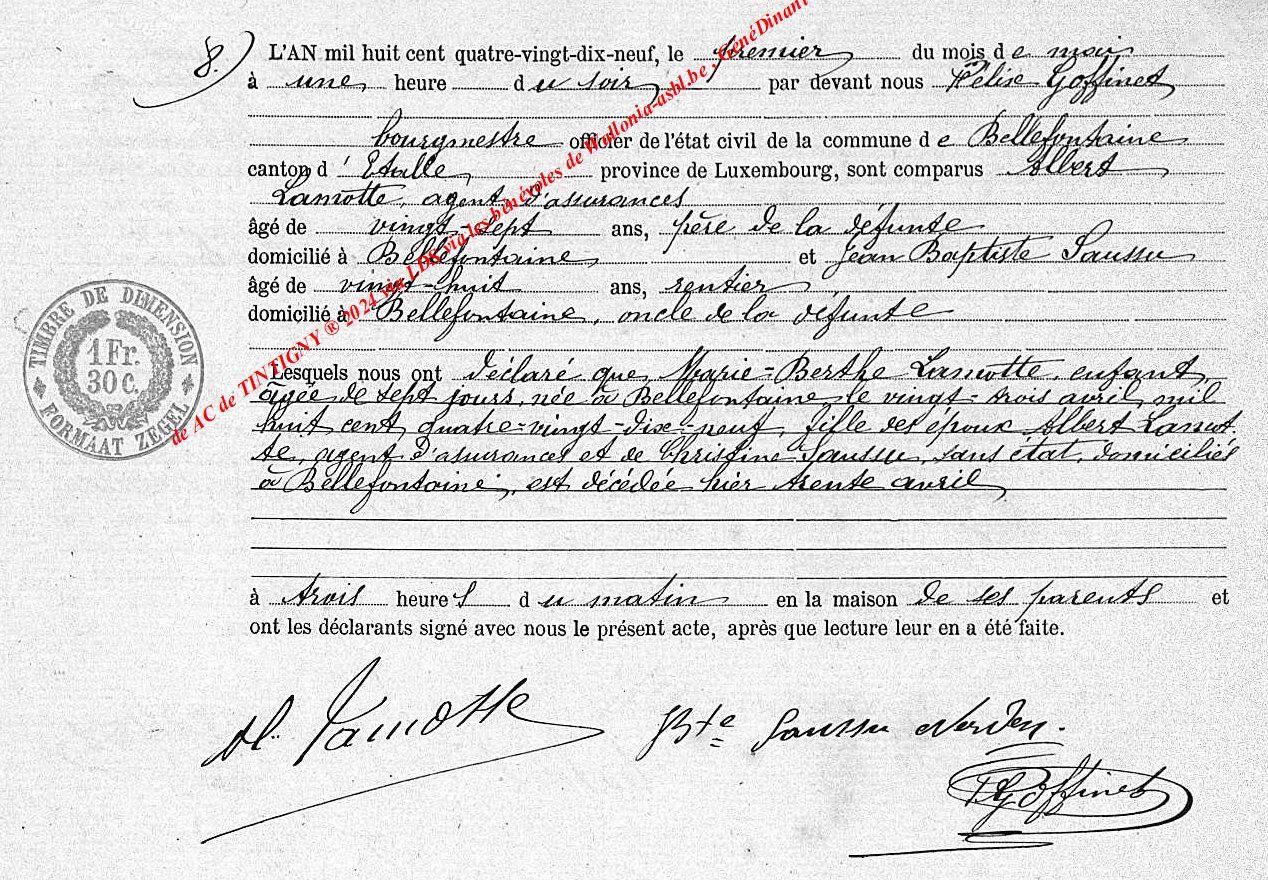 8.) L'AN mil huit cent quatre-vingt-dix-neuf, le premier du mois de mai
à une heure du soir par devant nous Félise Goffinet
bourgmestre officier de l'état civil de la commune de Bellefontaine
canton d'Etalle, province de Luxembourg, sont comparus Albert
Lamotte, agent d'assurances
âgé de vingt-sept ans, père de la défunte
domicilié à Bellefontaine et Jean Baptiste Saussu
âgé de vingt-huit ans, rentier,
domicilié à Bellefontaine, oncle de la défunte
Lesquels nous ont déclaré que Marie=Berthe Lamotte, enfant,
agée de sept jours, née à Bellefontaine le vingt-trois avril mil
huit cent quatre=vingt-dix=neuf, fille des époux Albert Lamot
te, agent d'assurances et de Christine Saussu, sans état, domiciliés
à Bellefontaine, est décédée hier trente avril
à trois heures du matin en la maison de ses parents et
ont les déclarants signé avec nous le présent acte, après que lecture leur en a été faite.
Al. Lamotte
Bte Saussu
F. Goffinet
TIMBRE DE DIMENSION
1 Fr.
30 C.
FORMAAT ZEGEL
de AC de TINTIGNY ® 2024 via LDK via les bénévoles de Wallonia-asbl.be, GénéDinant